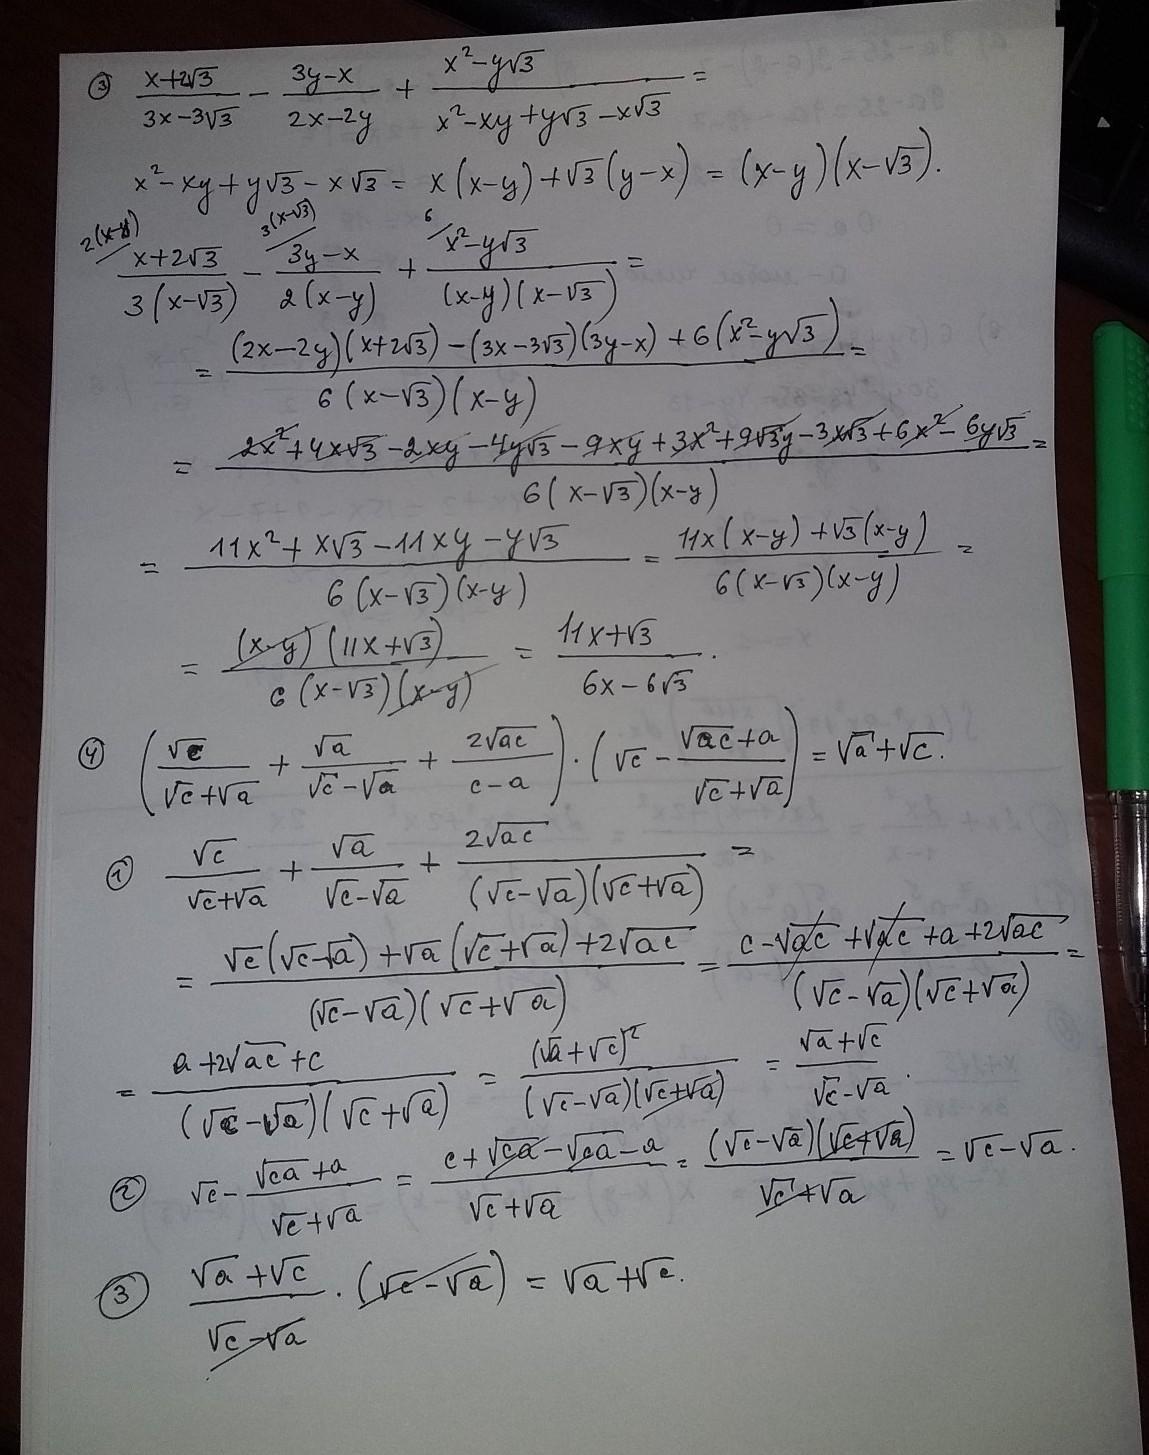 ③ (x+2√3)/(3x-3√3) - (3y-x)/(2x-2y) + (x²-y√3)/(x²-xy+y√3-x√3) =
x²-xy+y√3-x√3 = x(x-y)+√3(y-x) = (x-y)(x-√3).
2(x-y)/ (x+2√3)/(3(x-√3)) - 3(x-√3)/ (3y-x)/(2(x-y)) + 6/ (x²-y√3)/((x-y)(x-√3)) =
= ((2x-2y)(x+2√3)-(3x-3√3)(3y-x)+6(x²-y√3))/(6(x-√3)(x-y)) =
= (2x²+4x√3-2xy-4y√3-9xy+3x²+9√3y-3x√3+6x²-6y√3)/(6(x-√3)(x-y)) =
= (11x²+x√3-11xy-y√3)/(6(x-√3)(x-y)) = (11x(x-y)+√3(x-y))/(6(x-√3)(x-y)) =
= ((x-y)(11x+√3))/(6(x-√3)(x-y)) = (11x+√3)/(6x-6√3).
④ (√c/(√c+√a) + √a/(√c-√a) + 2√ac/(c-a)) · (√c - (√ac+a)/(√c+√a)) = √a+√c.
① √c/(√c+√a) + √a/(√c-√a) + 2√ac/((√c-√a)(√c+√a)) =
= (√c(√c-√a)+√a(√c+√a)+2√ac)/((√c-√a)(√c+√a)) = (c-√ac+√ac+a+2√ac)/((√c-√a)(√c+√a)) =
= (a+2√ac+c)/((√c-√a)(√c+√a)) = (√a+√c)²/((√c-√a)(√c+√a)) = (√a+√c)/(√c-√a).
② √c - (√ca+a)/(√c+√a) = (c+√ca-√ca-a)/(√c+√a) = ((√c-√a)(√c+√a))/(√c+√a) = √c-√a.
③ (√a+√c)/(√c-√a) · (√c-√a) = √a+√c.